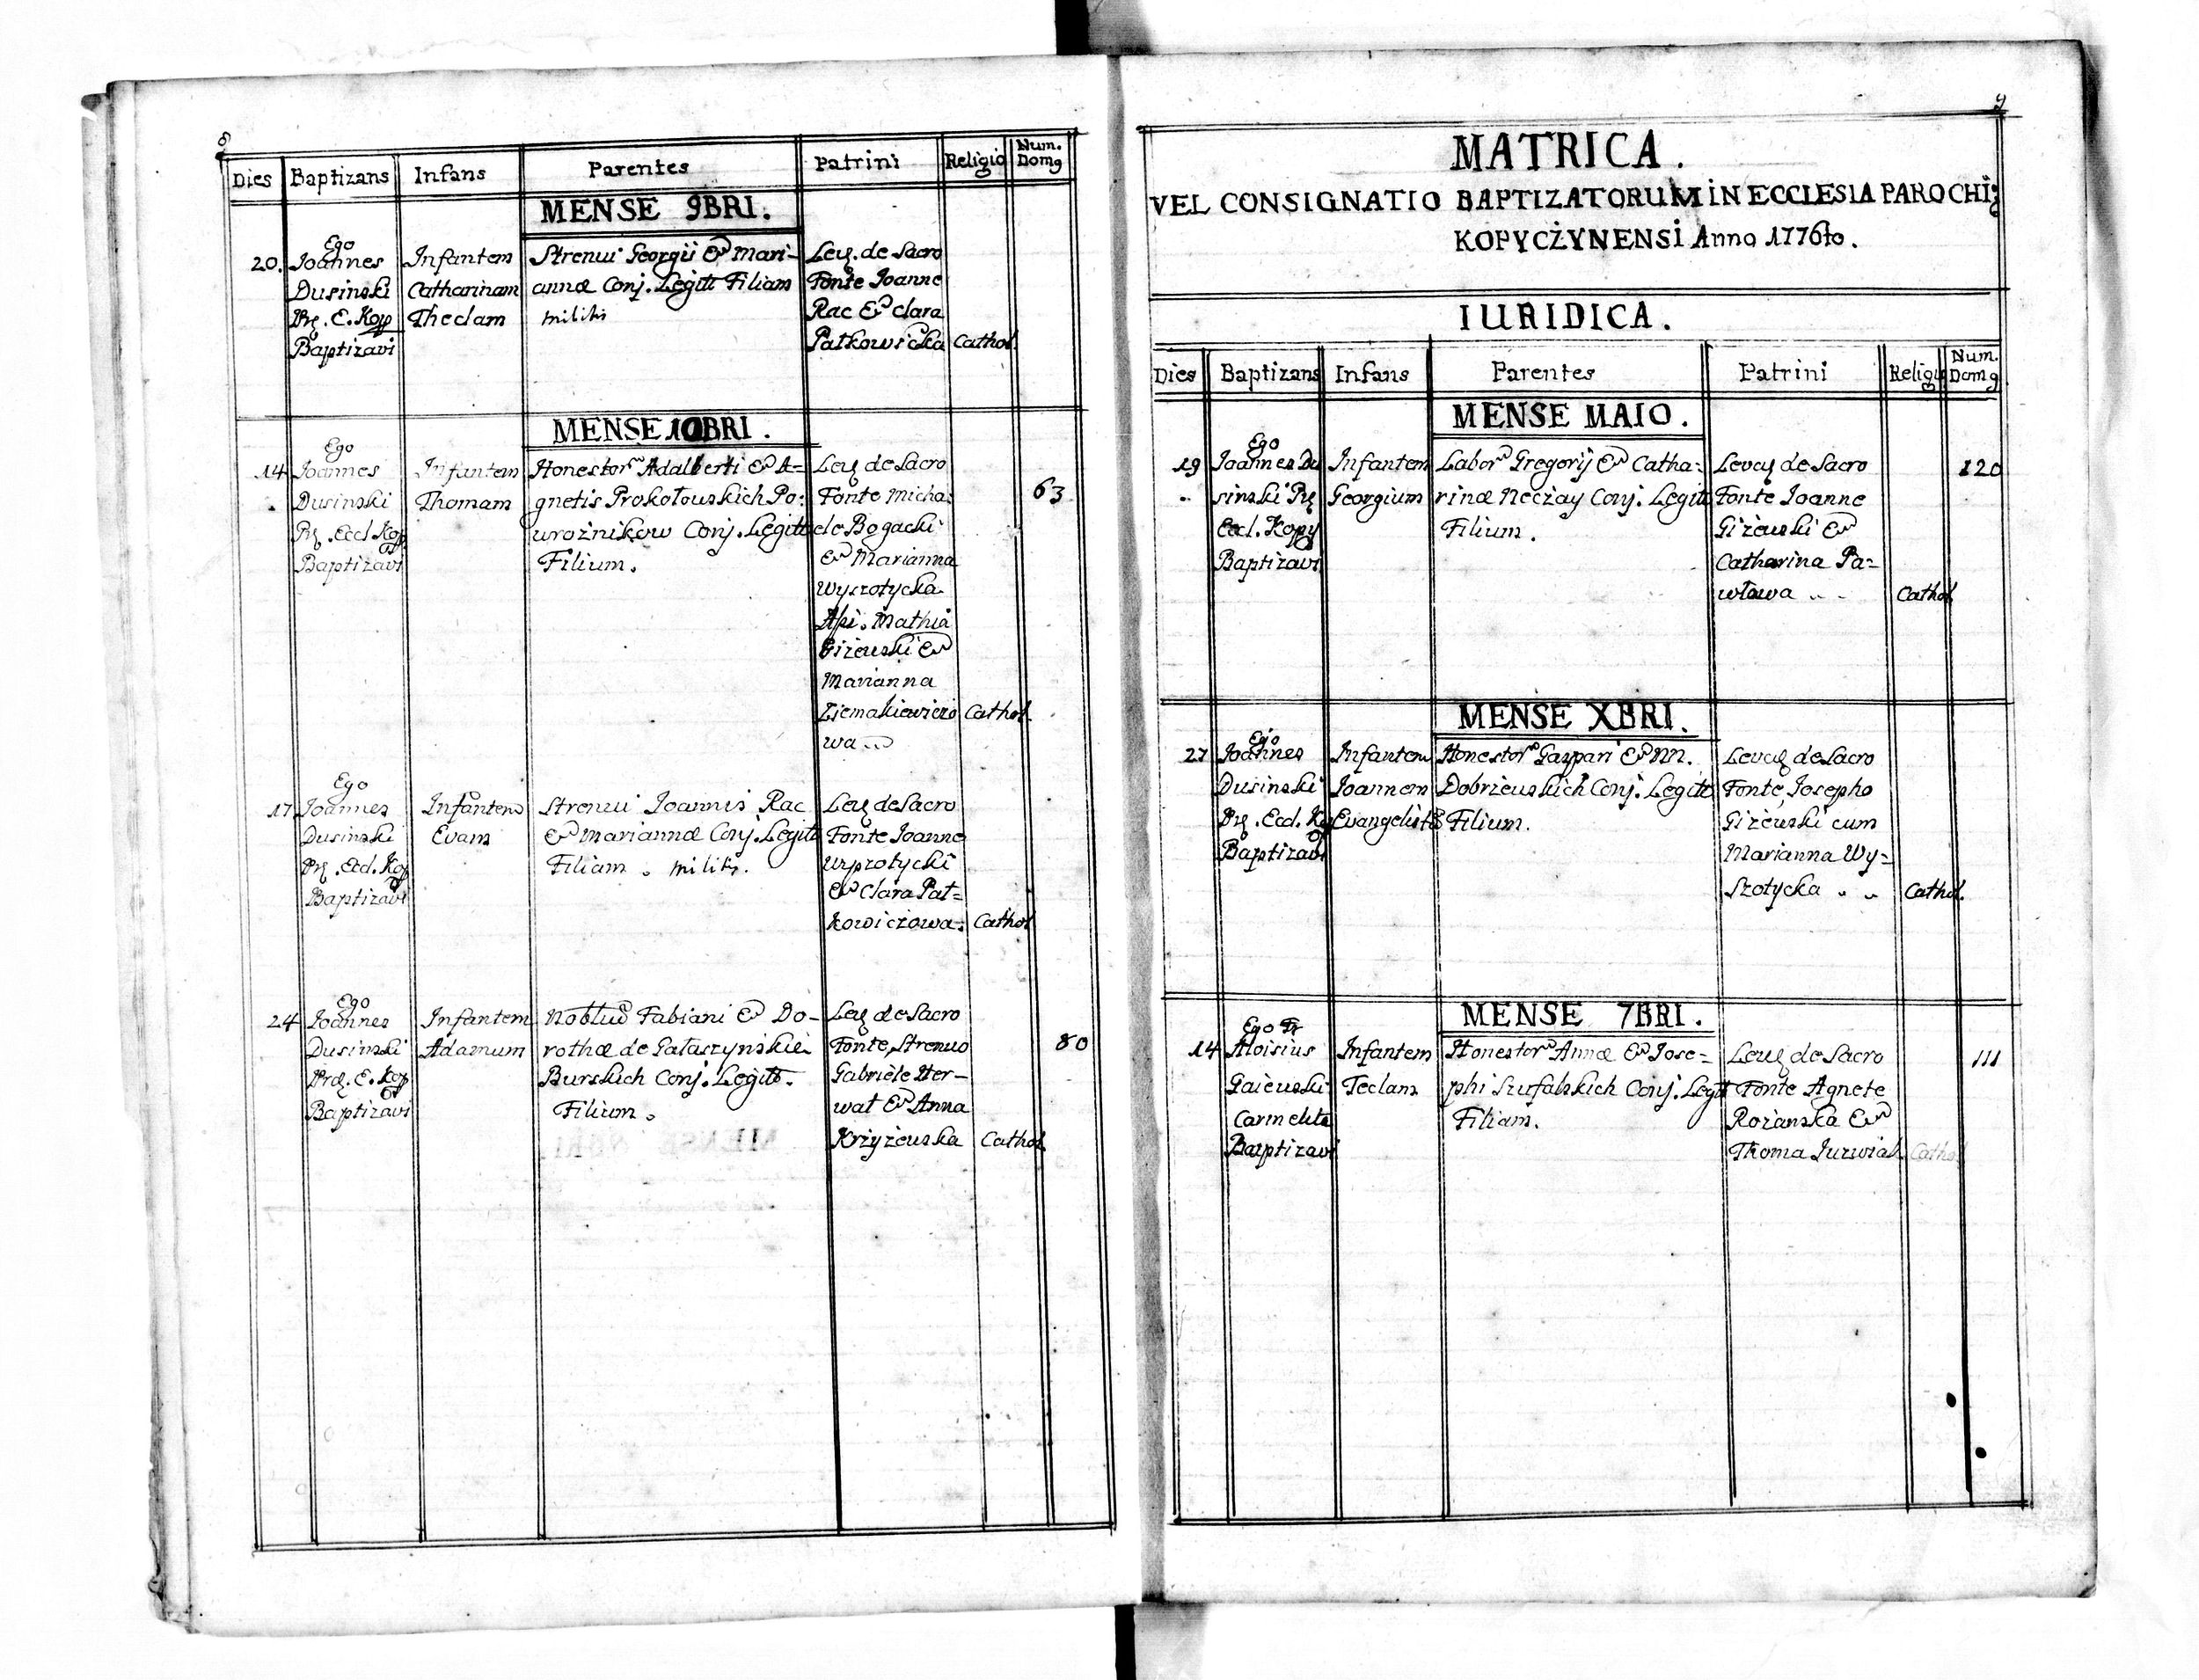 8
Dies Baptizans Infans Parentes Patrini Religio Num. Domg
MENSE 9BRI.
20.
Ego
Joannes
Dusinski
Prę. E. Kop
Baptizavi
Infantem
Catharinam
Theclam
Strenui Georgii & Mari-
annæ Conj. Legitt Filiam
militis
Leuę. de Sacro
Fonte Joanne
Rac & Clara
Patkowicka
Cathol.
MENSE 10BRI.
14
Ego
Joannes
Dusinski
Prę. Eccl Kop
Baptizavi
Infantem
Thomam
Honestor. Adalberti & A=
gnetis Prokołouskich Po:
uroźnikow Conj. Legitt
Filium.
Leuę de Sacro
Fonte Micha:
ele Bogacki
& Marianna
Wyszotycka.
Api. Mathia
Giżeuski &
Marianna
Ziemakiewiczo
wa
Cathol.
63
17
Ego
Joannes
Dusinski
Prę. Eccl. Kop
Baptizavi
Infantem
Evam
Strenui Joannis Rac
& Mariannæ Conj. Legitt
Filiam. militis.
Leuę de Sacro
Fonte Joanne
Wyszotycki
& Clara Pat=
kowiczowa.
Cathol
24
Ego
Joannes
Dusinski
Præ. E. Kop
Baptizavi
Infantem
Adamum
Fabiani & Do-
rothæ de Gałaszynskie
Burskich Conj. Legitt.
Filium.
Leuę de Sacro
Fonte, Strenuo
Gabriele Her-
wat & Anna
Krzyżeuska
Cathol.
80
9
MATRICA.
VEL CONSIGNATIO BAPTIZATORUM IN ECCLESIA PAROCHI:
KOPYCŻYNENSI Anno 1776to.
IURIDICA.
Dies Baptizans Infans Parentes Patrini Religio Num. Domg
MENSE MAIO.
19
Ego
Joannes Du
sinski Prę
Eccl. Kopy
Baptizavi
Infantem
Georgium
Labor. Gregorij & Catha=
rinæ Neczay Conj. Legitt
Filium.
Levaę de Sacro
Fonte Joanne
Giżeuski &
Catharina Pa=
włowa
Cathol
120
MENSE XBRI.
27
Ego
Joannes
Dusinski
Prę. Eccl. Ko
Baptizavi
Infantem
Joannem
Evangelistã
Honestor. Gaspari & NN.
Dobrzeuskich Conj. Legitt
Filium.
Levaę de Sacro
Fonte, Josepho
Giżeuski cum
Marianna Wy=
szotycka
Cathol.
MENSE 7BRI.
14
Ego Fr
Aloisius
Gaieuski
Carmelita
Baptizavi
Infantem
Teclam
Honestor. Annæ & Jose=
phi Szufalskich Conj. Legitt
Filiam.
Leuę de Sacro
Fonte Agnete
Rożanska &
Thoma Jurwiak
Cathol
111